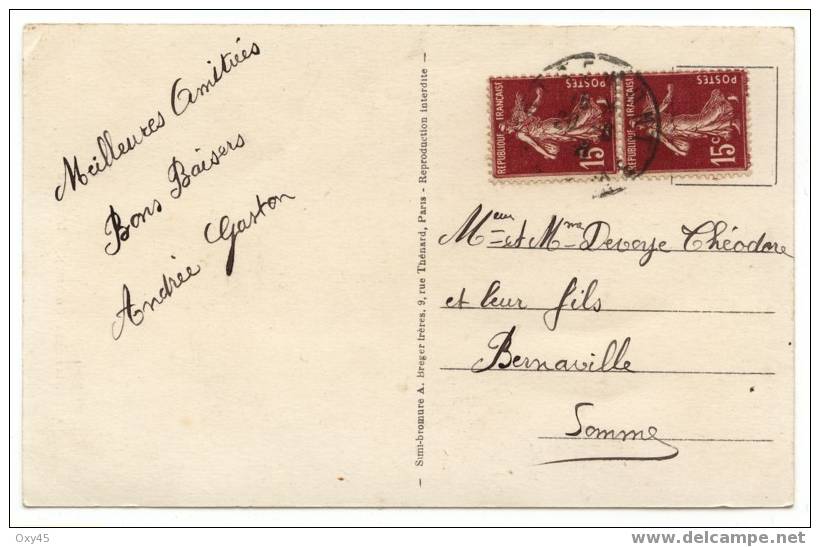 Meilleures Amitiées
Bons Baisers
Andrée Gaston
Simi-bromure A. Breger frères, 9, rue Thénard, Paris - Reproduction interdite
POSTES
REPUBLIQUE FRANÇAISE
15
POSTES
REPUBLIQUE FRANÇAISE
15c
Mieur et Mme Devoye Théodore
et leur fils
Bernaville
Somme
Oxy45
www.delcampe.net